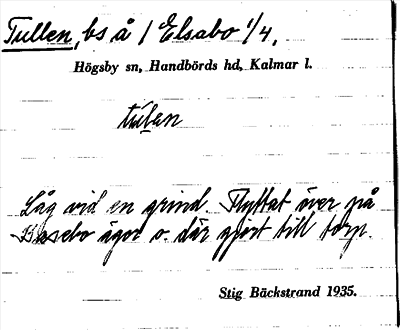 Tullen, bs å 1 Elsabo 1/4,
Högsby sn, Handbörds hd, Kalmar l.
tulen
Låg vid en grind. Flyttat över på
ägor o. där gjort till torp.
Stig Bäckstrand 1935.